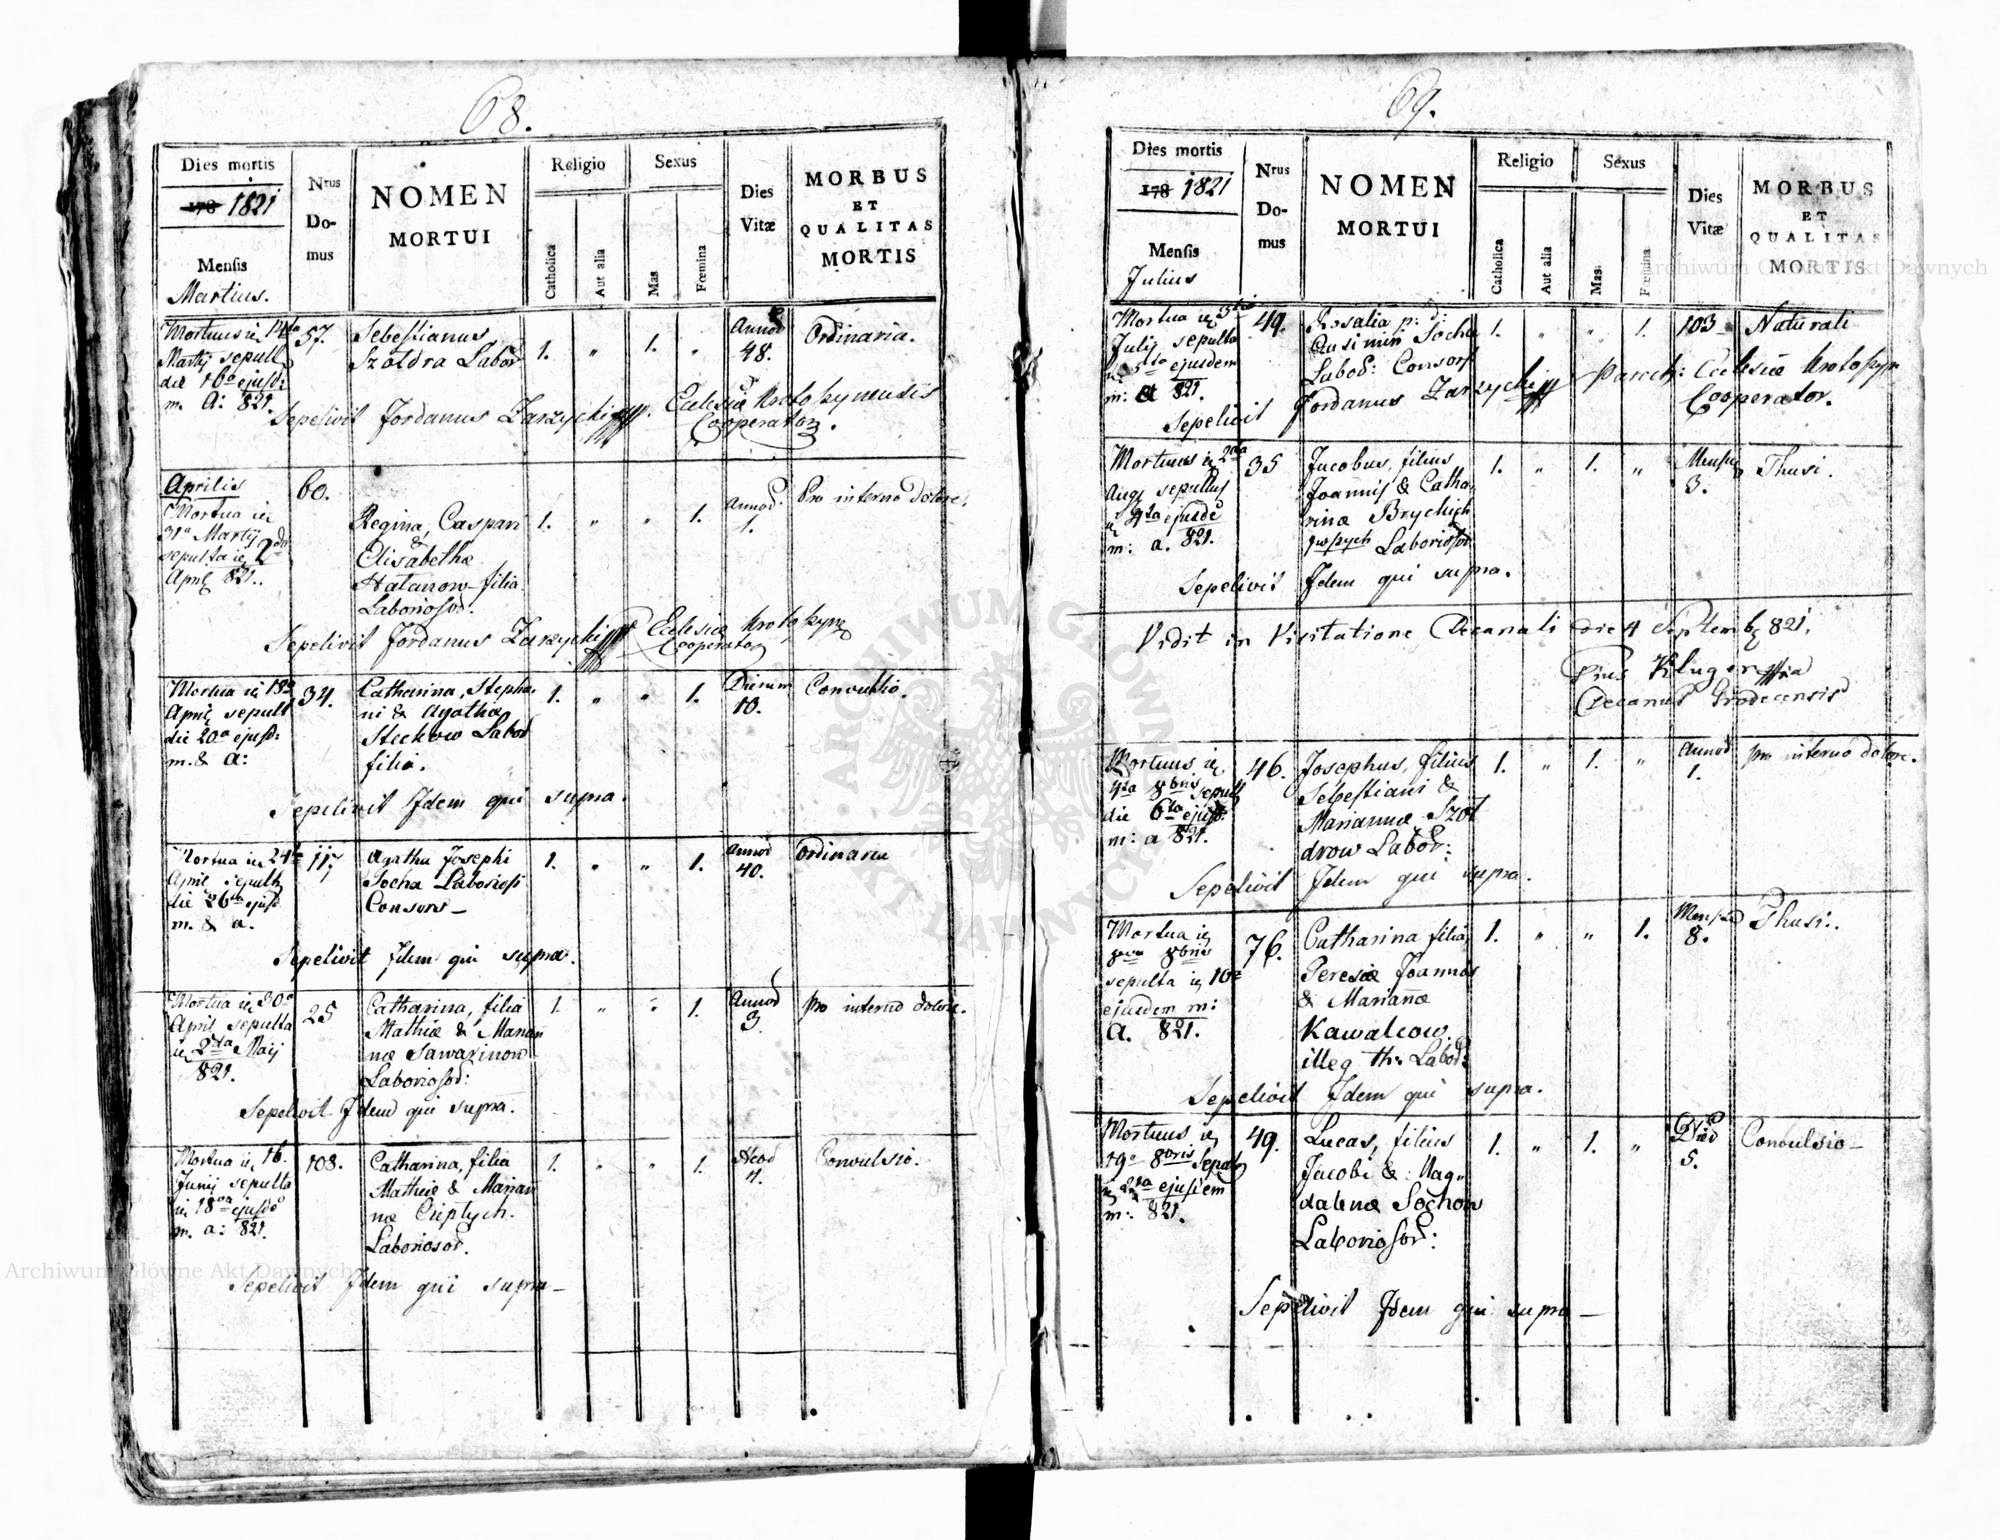 68.
Dies mortis
178 1821
Mensis
Martius.
Nrus
Do-
mus
NOMEN
MORTUI
Religio
Catholica
Aut alia
Sexus
Mas
Fœmina
Dies
Vitæ
MORBUS
ET
QUALITAS
MORTIS
Mortuus
Martij sepult
die 16a ejusd:
m. A: 821.
57.
Sebestianus
Szoldra Labor
1.
"
1.
"
48.
Ordinaria.
Sepelivit Jordanus Zarzycki Eclesiæ Krotoszynensis
Cooperator.
Aprilis
Mortua
31a Martij
sepulta 2do
Apri 821.
60.
Regina, Caspari
&
Elisabethæ
filia
Laboriosor.
1.
"
"
1.
1.
Pro interno dolore.
Sepelivit Jordanus Zarzycki Eclesiæ
Cooperator
Mortua 18a
April sepult
die 20a ejusd:
m. & a:
34.
Catharina, Stepha
ni & Agathæ
Labor
filia.
1.
"
"
1.
Dierum
10.
Convulsio.
Sepelivit Idem qui supra.
Mortua 24ta
April sepult
die 26ta ejusd
m. & a.
117
Agatha Josephi
Socha Laboriosi
Consors
1.
"
"
1.
40.
Ordinaria
Sepelivit Idem qui supra.
Mortua 30a
April sepulta
2da Maij
821.
25
Catharina, filia
Mathiæ & Marian
næ
Laboriosor:
1.
"
"
1.
3.
pro interno dolore.
Sepelivit Idem qui supra.
Mortua 16.
Junij sepulta
18va
m. a: 821.
108.
Catharina, filia
Mathiæ & Marian
næ
Laboriosor.
1.
"
"
1.
Convulsio.
Sepelivit Idem qui supra
69.
Dies mortis
178 1821
Mensis
Julius
Nrus
Do-
mus
NOMEN
MORTUI
Religio
Catholica
Aut alia
Sexus
Mas.
Fœmina
Dies
Vitæ
MORBUS
ET
QUALITAS
MORTIS
Mortua
Julij sepulta
ejusdem
m: a 821.
49.
Rosalia
Socha
Labor: Consors
1.
"
"
1.
103
Naturali
Sepelivit Jordanus Zarzycki Paroch: Eclesiæ
Cooperator.
Mortuus 2da
Aug sepultus
4ta
m: a. 821.
35
Jacobus, filius
Joannis & Catha
rinæ
Laboriosor
1.
"
1.
"
3.
Thusi.
Sepelivit Idem qui supra.
Vidit in Visitatione Decanali die 4 Septemb 821.
Decanus Grodecensis
Mortuus
4ta 8bris sepult
die 6ta ejusd:
m: a 821.
46.
Josephus, filius
Sebestiani &
Mariannæ Szol
drow Labor:
1.
"
1.
"
1.
pro interno dolore.
Sepelivit Idem qui supra.
Mortua
8bris
sepulta 10a
ejusdem m:
a. 821.
76.
Catharina filia
Joannis
& Mariañæ
Kawalcow.
illeg th: Labor:
1.
"
"
1.
8.
Thusi.
Sepelivit Idem qui supra.
Mortuus
19a 8bris
21a
m: 821.
49.
Lucas, filius
Jacobi & Mag-
dalenæ Sochow
Laboriosor:
1.
"
1.
"
5.
Convulsio
Sepelivit Idem qui supra
ARCHIWUM GŁÓWNE AKT DAWNYCH
Archiwum Główne Akt Dawnych
Archiwum Główne Akt Dawnych